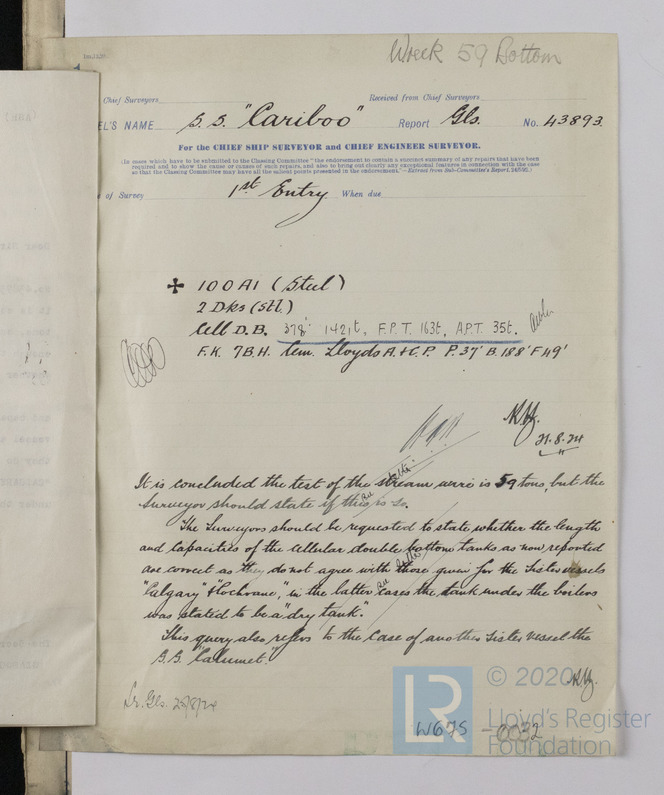 Wreck 59 Bottom
Chief Surveyors
Received from Chief Surveyors
EL'S NAME S.S. "Cariboo" Report Gls. No. 43893
For the CHIEF SHIP SURVEYOR and CHIEF ENGINEER SURVEYOR.
required and to show the cause or causes of such repairs, and also to bring out clearly any exceptional features in connection with the case
so that the Classing Committee may have all the salient points presented in the endorsement."—Extract from Sub-Committee's Report,
of Survey 1st Entry When due
✠ 100A1 (Steel)
2 Dks (Stl.)
Cell D.B. 378' 1421t, F.P.T. 163t, A.P.T. 35t.
F.K. 7B.H. Cem. Lloyds A.&C.P. P.37' B.188' F49'
21.8.24
It is concluded the test of the stream wire is 59 tons, but the
Surveyor should state if this is so.
The Surveyors should be requested to state whether the length
and capacities of the cellular double bottom tanks as now reported
are correct as they do not agree with those given for the Sister vessels
"Calgary" & "Cochrane," in the latter cases the tank under the boilers
was stated to be a "dry tank".
This query also refers to the case of another sister vessel the
S.S. "Calumet."
Lr. Gls. 22/8/24
© 2020
LR
Lloyd's Register
Foundation
W675-0032